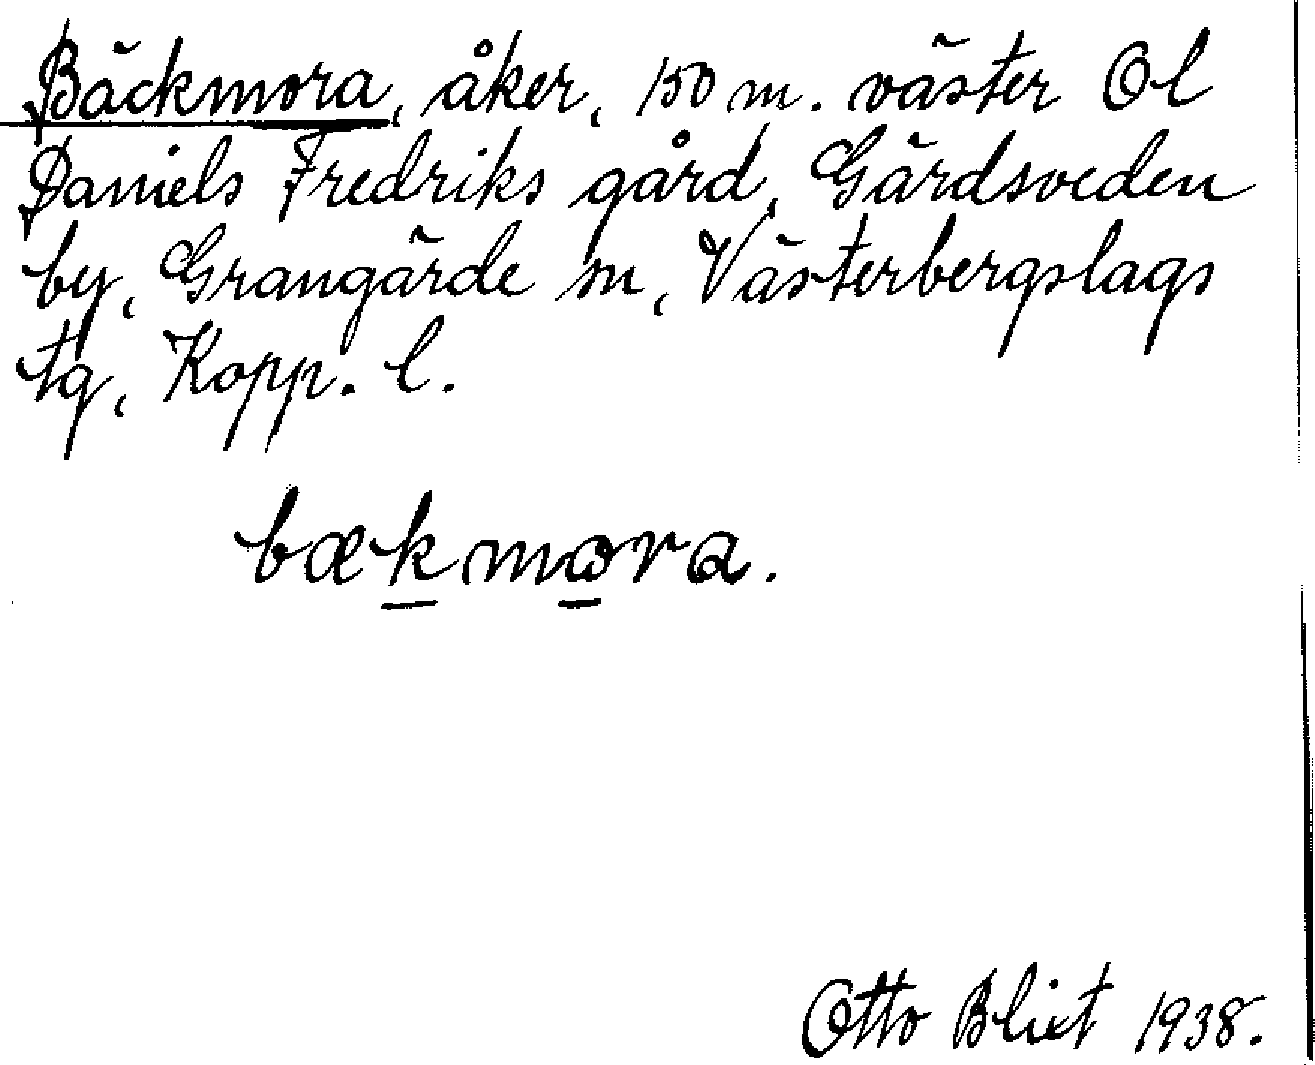 Bäckmora, åker, 150 m. väster Ol
Daniels Fredriks gård, Gärdsveden
by, Grangärde sn, Västerbergslags
tg, Kopp. l.
bækmora.
Otto Blixt 1938.